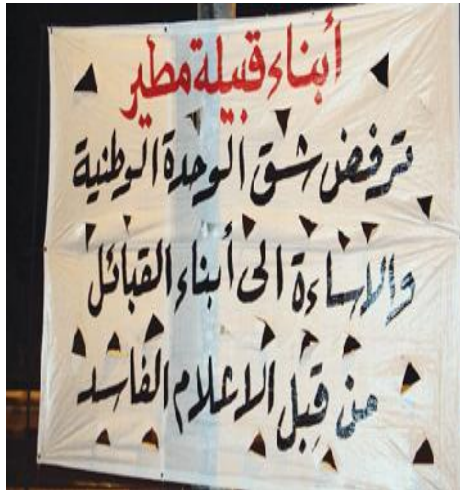 أبناء قبيلة مطير
ترفض شق الوحدة الوطنية
والاساءة الى أبناء القبائل
من قِبل الاعلام الفاسد